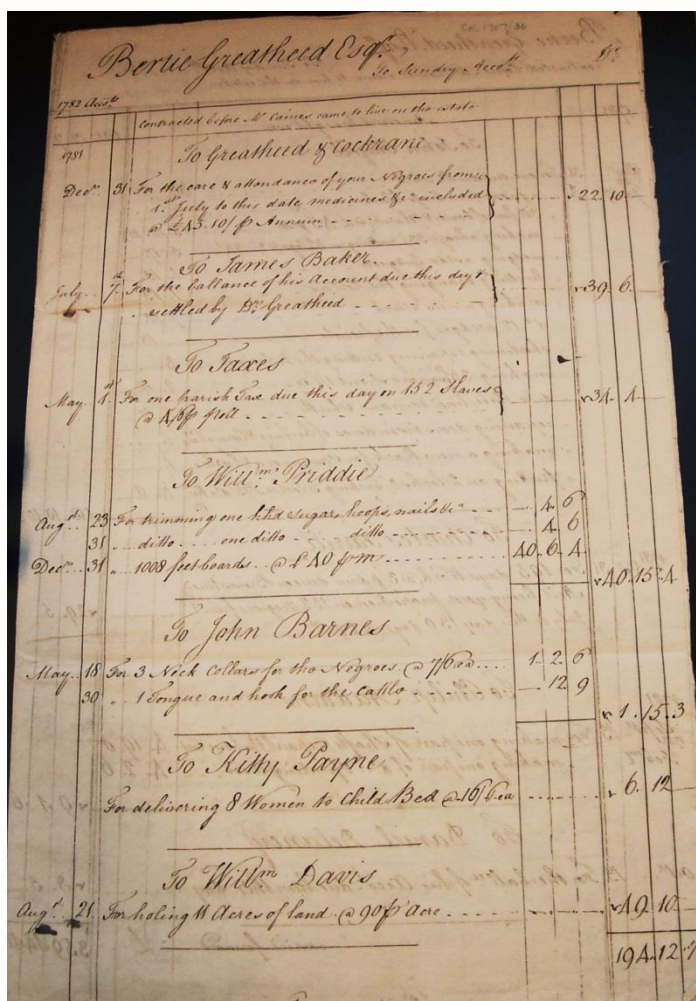 Bertie Greatheed Esqr.
To Sundry Accots. Dr.
1782 Augst.
Contracted before Mr Caines came to live on the estate
1781
To Greatheed & Cockrane
Decr. 31 For the care & attendance of your Negroes from
1st July to this date medicines &c included
@ £45.10/ p Annum - - - 22. 10
To James Baker
July 7th. For the ballance of his Account due this day
settled by Dr. Greatheed - - - - 39. 6.
To Taxes
May 1st. For one parish Tax due this day on 152 Slaves
@ 4/6 p poll - - - - 34. 4
To Willm. Priddie
Augt. 23 For trimming one hhd sugar, hoops, nails &c - - - 4. 6
31 .. ditto .... one ditto . ditto - - - - 4. 6
Decr. 31 " 1008 feet boards .. @ £40 p m - - - - 40. 6. 4
40. 15. 4
To John Barnes
May 18 For 3 Neck Collars for the Negroes @ 7/6 ea .... 1. 2. 6
30 " 1 Tongue and hook for the Cattle - - - 12. 9
1. 15. 3
To Kitty Payne
For delivering 8 Women to Child Bed @ 16/6 ea - - - - 6. 12
To Willm. Davis
Augt. 21. For holing 11 Acres of land @ 90/ p Acre .... 49. 10
194. 12. 7